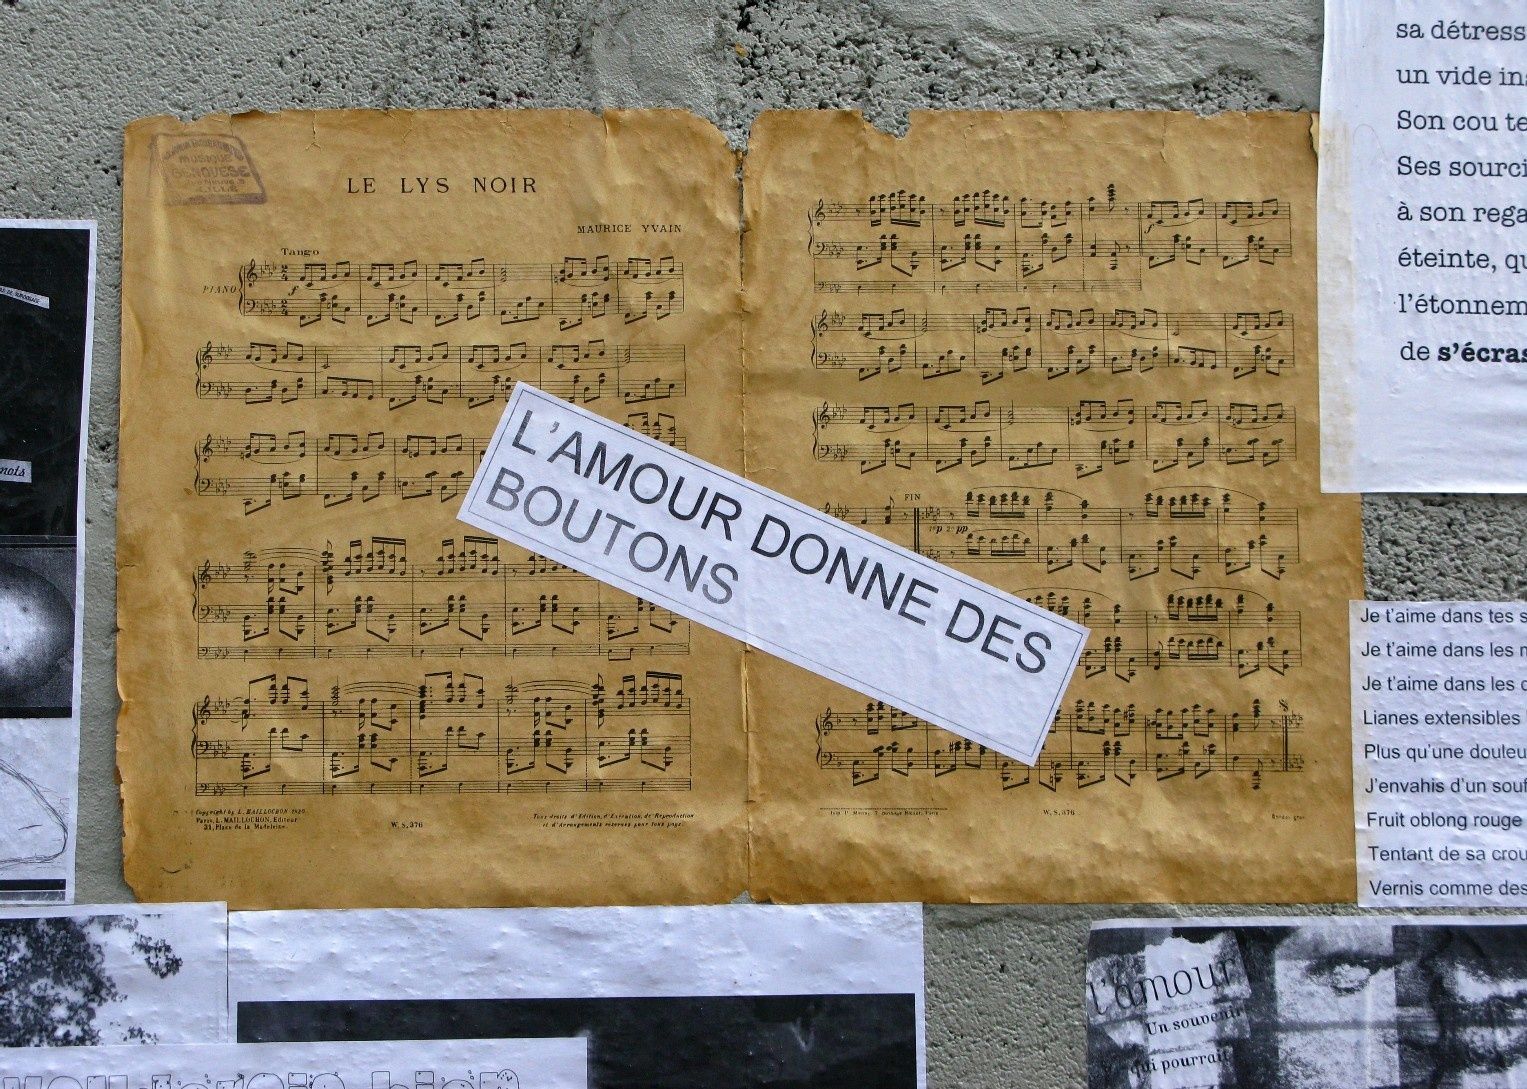 MUSIQUE
GENOVESE
LILLE
LE LYS NOIR
MAURICE YVAIN
Tango
PIANO
FIN
1º p 2º pp
L'AMOUR DONNE DES
BOUTONS
Copyright by L. MAILLOCHON 1920.
Paris, L. MAILLOCHON, Editeur
31, Place de la Madeleine.
W. S. 376
Tous droits d'Edition, d'Exécution, de Reproduction
et d'Arrangements réservés pour tous pays.
W. S. 376
sa détress
un vide in
Son cou te
Ses sourci
à son rega
éteinte, qu
l'étonnem
de s'écras
Je t'aime dans tes s
Je t'aime dans les
Je t'aime dans les
Lianes extensibles
Plus qu'une douleu
J'envahis d'un souf
Fruit oblong rouge
Tentant de sa crou
Vernis comme des
mots
l'amour
Un souvenir
qui pourrait